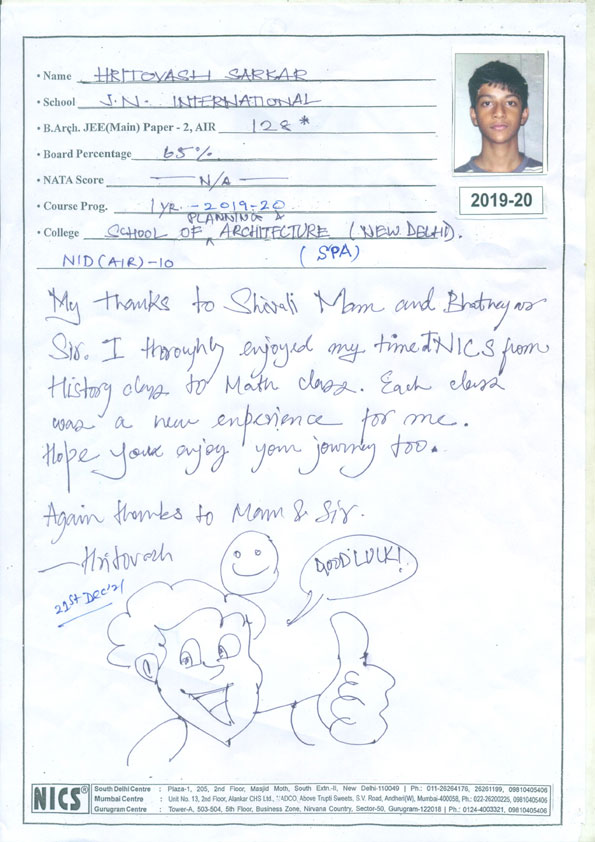 • Name HRITOVASH SARKAR
• School J.N. INTERNATIONAL
• B.Arch. JEE(Main) Paper - 2, AIR 128*
• Board Percentage 65%
• NATA Score N/A
• Course Prog. 1 yr. - 2019-20
2019-20
• College SCHOOL OF PLANNING & ARCHITECTURE (NEW DELHI).
NID (AIR) - 10 (SPA)
My thanks to Shivali Mam and Bhatnagar
Sir. I thoroughly enjoyed my time @ NICS from
History class to Math class. Each class
was a new experience for me.
Hope you enjoy your journey too.
Again thanks to Mam & Sir.
— Hritovash
21st Dec'21
GOOD LUCK!
NICS®
South Delhi Centre : Plaza-1, 205, 2nd Floor, Masjid Moth, South Extn.-II, New Delhi-110049 | Ph.: 011-26264176, 26261199, 09810405406
Mumbai Centre : Unit No. 13, 2nd Floor, Alaskar CHS Ltd., MADCO, Above Trupti Sweets, S.V. Road, Andheri(W), Mumbai-400058, Ph.: 022-26200225, 09810405406
Gurugram Centre : Tower-A, 503-504, 5th Floor, Business Zone, Nirvana Country, Sector-50, Gurugram-122018 | Ph.: 0124-4003321, 09810405406